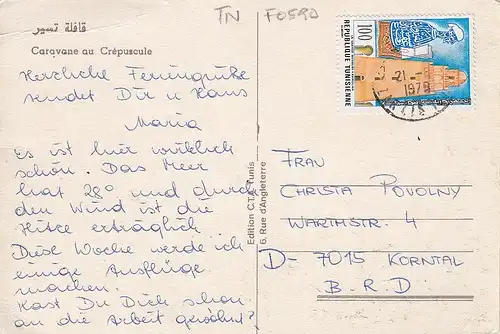 قافلة تسير
TN F0590
Caravane au Crépuscule
Herzliche Feriengrüße
sendet Dir u Hans
Maria
Es ist hier wirklich
schön. Das Meer
hat 28° und durch
den Wind ist die
Hitze erträglich
Diese Woche werde ich
einige Ausflüge
machen.
Hast Du Dich schon
an die Arbeit gewöhnt?
Edition C.T. Tunis
6, Rue d'Angleterre
100
REPUBLIQUE TUNISIENNE
21
1979
FRAU
CHRISTA POVOLNY
WARTHSTR. 4
D- 7015 KORNTAL
B.R.D.